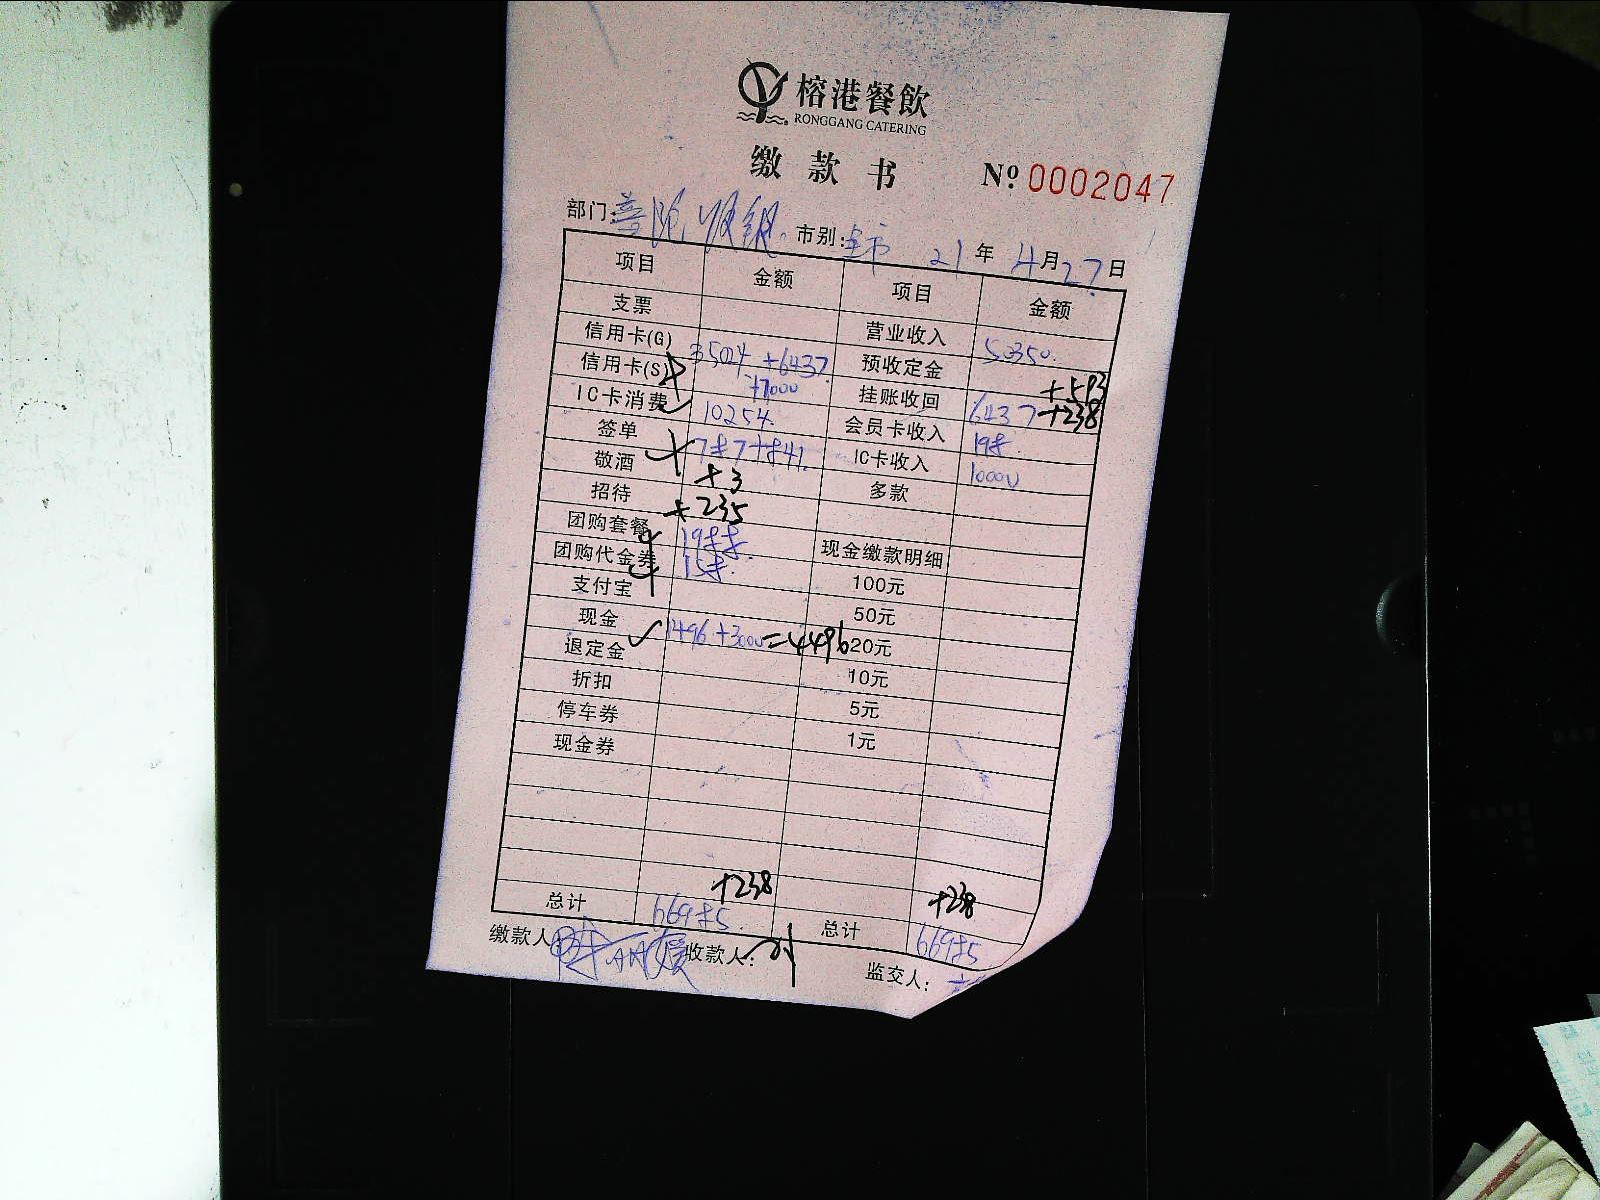 榕港餐飲
RONGGANG CATERING
缴款书 Nº 0002047
部门: 市别: 全市 21年4月27日
项目 金额 项目 金额
支票 营业收入 50350.
信用卡(G) 35024+6437 预收定金 +593
信用卡(S) +7000 挂账收回 6437+238
IC卡消费 10254. 会员卡收入
签单 IC卡收入 10000
敬酒 +3 多款
招待 +235
团购套餐 现金缴款明细
团购代金券 100元
支付宝 50元
现金 1496+3000=4496 20元
退定金 10元
折扣 5元
停车券 1元
现金券
+238 +238
总计 总计
缴款人: 收款人: 监交人: